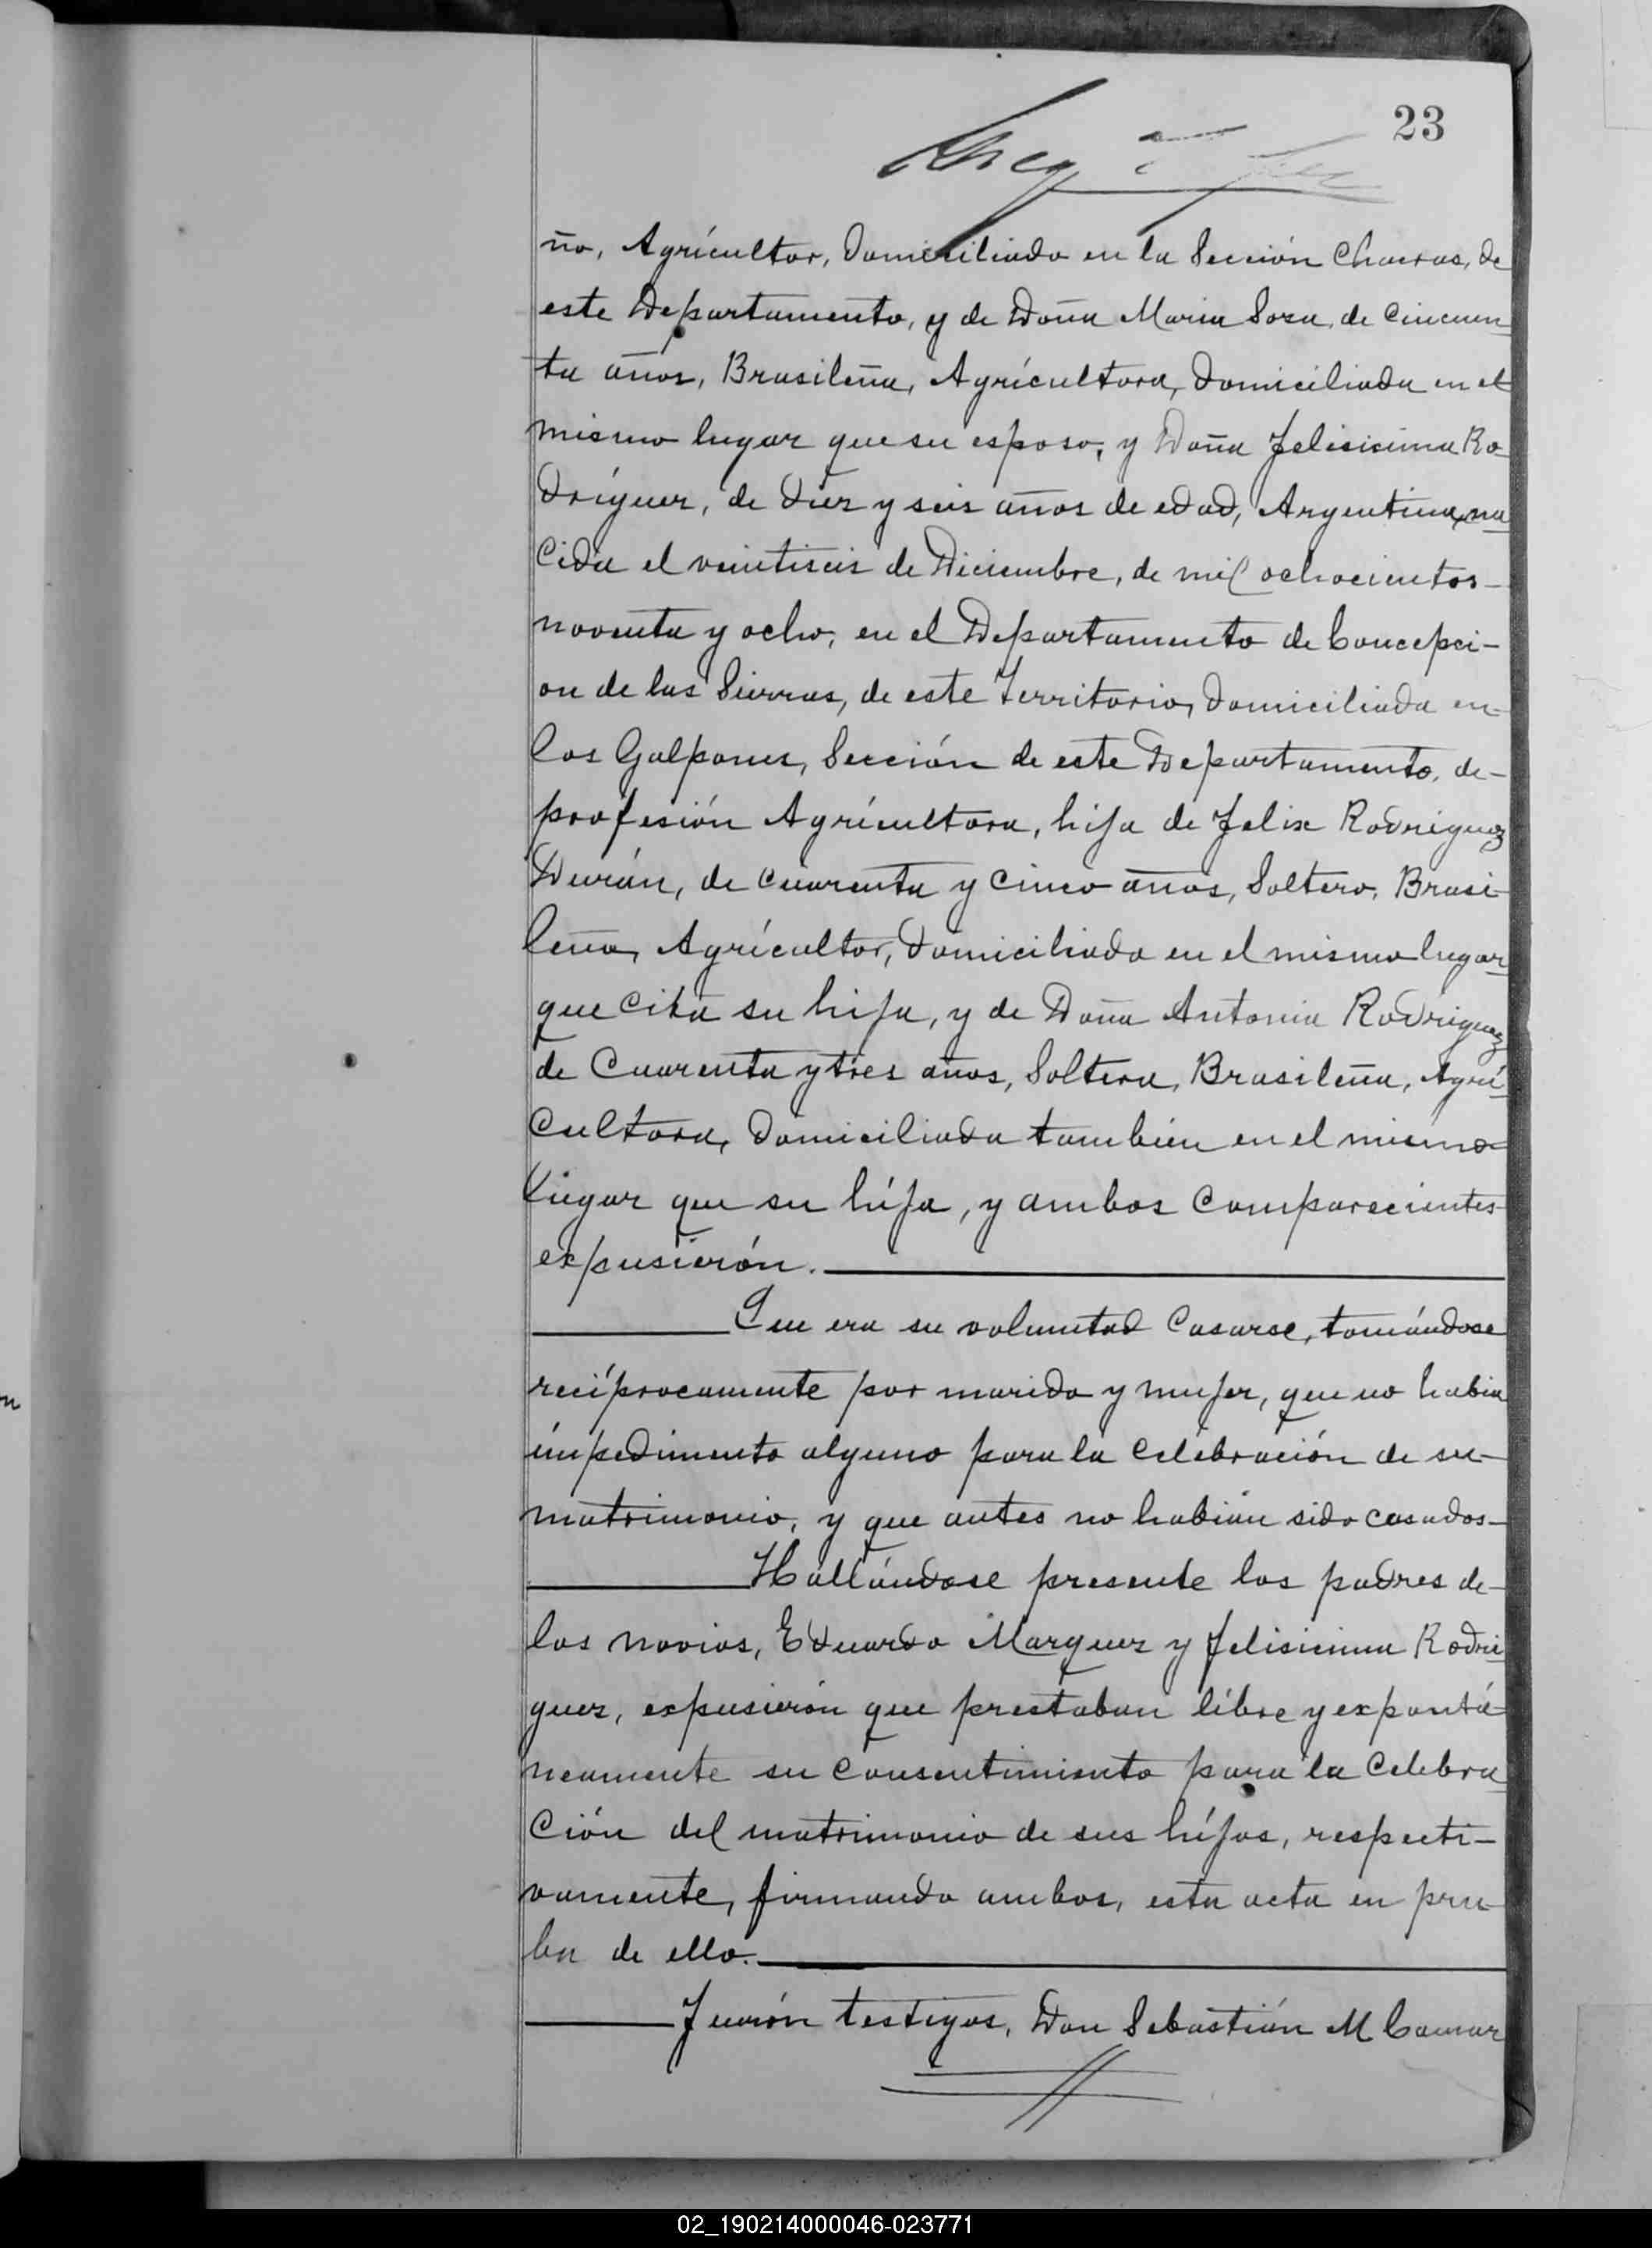 23
ño, Agrícultor, domiciliado en la Sección Chacras, de
este Departamento, y de Doña Maria Sosa, de Cincuen
ta años, Brasileña, Agrícultora, domiciliada en el
mismo lugar que su esposo, y Doña Felisicima Ro
driguez, de diez y seis años de edad, Argentina, na
cida el veintiseis de Diciembre, de mil ochocientos-
noventa y ocho, en el Departamento de Concepci-
on de las Sierras, de este Territorio, domiciliada en-
los Galpones, Sección de este Departamento, de-
profesión Agrícultora, hija de Felix Rodriguez
Durán, de cuarenta y cinco años, Soltero, Brasi
leño, Agrícultor, domiciliado en el mismo lugar
que cita su hija, y de Doña Antonia Rodriguez
de Cuarenta y tres años, Soltera, Brasileña, Agrí
cultora, domiciliada tambien en el mismo
lugar que su hija, y ambos comparecientes
expusierón.
Que era su voluntad casarse, tomándose
recíprocamente por marido y mujer, que no habia
impedimento alguno para la celebración de su-
matrimonio, y que antes no habian sido casados-
Hallándose presente los padres de-
los novios, Eduardo Marquez y Felisicima Rodri
guez, expusierón que prestaban libre y expontá-
neamente su consentimiento para la celebra
ción del matrimonio de sus híjos, respecti-
vamente, firmando ambos, esta acta en prue
ba de ello.
Fuerón testigos, Don Sebastián M Camar
02_190214000046-023771